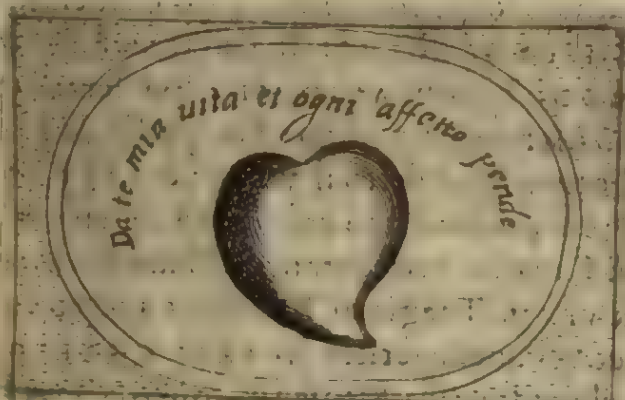 Da te mia uita et ogni affetto pende